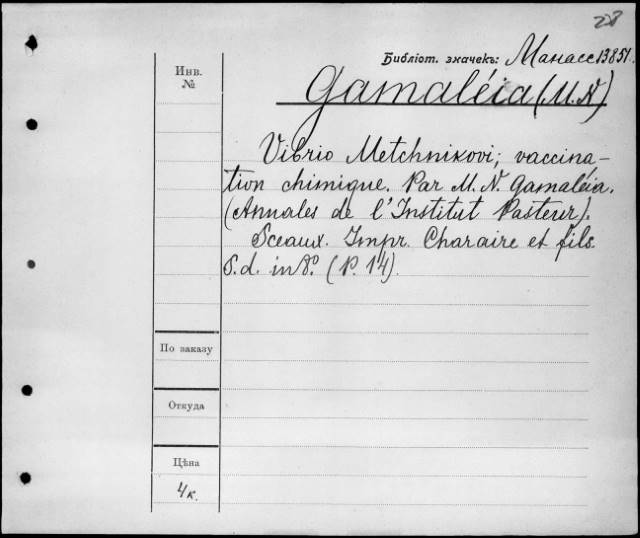 28
Библіот. значекъ: Манасс 13851.
Инв.
№
Gamaléia (M. N)
Vibrio Metchnikovi; vaccina-
tion chimique. Par M. N. Gamaléia.
(Annales de l'Institut Pasteur).
Sceaux. Impr. Charaire et fils.
S. d. in 8.° (P. 14).
По заказу
Откуда
Цѣна
4 к.